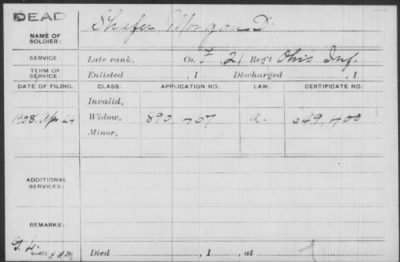 DEAD
NAME OF SOLDIER: Shafer Morgan D.
SERVICE Late rank, Co. F. 21 Reg't Ohio Inf.
TERM OF SERVICE: Enlisted , 1 Discharged , 1
DATE OF FILING. CLASS. APPLICATION NO. LAW. CERTIFICATE NO.
Invalid,
1908. Apr 24 Widow, 890,707 a. 649,700
Minor,
ADDITIONAL SERVICES:
REMARKS:
Died , 1 , at